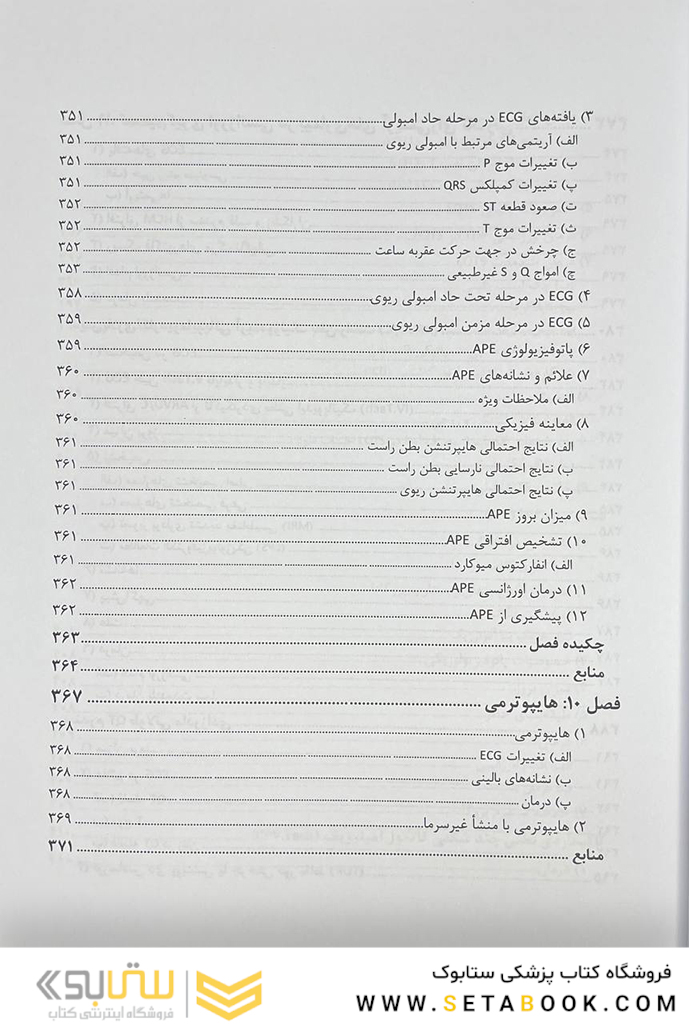 ۳) یافته‌های ECG در مرحله حاد امبولی ۳۵۱
الف) آریتمی‌های مرتبط با امبولی ریوی ۳۵۱
ب) تغییرات موج P ۳۵۱
پ) تغییرات کمپلکس QRS ۳۵۱
ت) صعود قطعه ST ۳۵۲
ث) تغییرات موج T ۳۵۲
ج) چرخش در جهت حرکت عقربه ساعت ۳۵۲
چ) امواج Q و S غیرطبیعی ۳۵۳
۴) ECG در مرحله تحت حاد امبولی ریوی ۳۵۸
۵) ECG در مرحله مزمن امبولی ریوی ۳۵۹
۶) پاتوفیزیولوژی APE ۳۵۹
۷) علائم و نشانه‌های APE ۳۶۰
الف) ملاحظات ویژه ۳۶۰
۸) معاینه فیزیکی ۳۶۰
الف) نتایج احتمالی هایپرتنشن بطن راست ۳۶۱
ب) نتایج احتمالی نارسایی بطن راست ۳۶۱
پ) نتایج احتمالی هایپرتنشن ریوی ۳۶۱
۹) میزان بروز APE ۳۶۱
۱۰) تشخیص افتراقی APE ۳۶۱
الف) انفارکتوس میوکارد ۳۶۱
۱۱) درمان اورژانسی APE ۳۶۲
۱۲) پیشگیری از APE ۳۶۲
چکیده فصل ۳۶۳
منابع ۳۶۴
فصل ۱۰: هایپوترمی ۳۶۷
۱) هایپوترمی ۳۶۸
الف) تغییرات ECG ۳۶۸
ب) نشانه‌های بالینی ۳۶۸
پ) درمان ۳۶۸
۲) هایپوترمی با منشأ غیرسرما ۳۶۹
منابع ۳۷۱
فروشگاه کتاب پزشکی ستابوک
WWW.SETABOOK.COM
ستابوک
فروشگاه اینترنتی کتاب